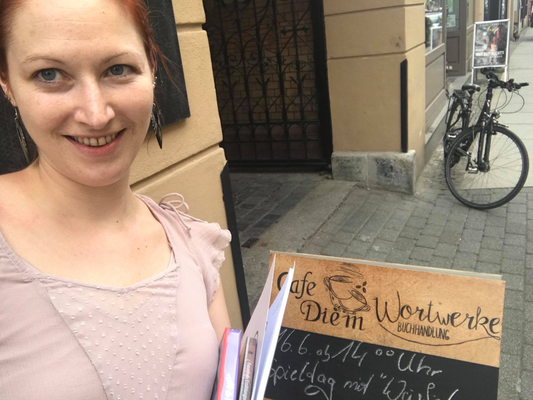 Cafe
Diem
Wortwerke
BUCHHANDLUNG
16.6. ab 14⁰⁰ Uhr
Spieltag mit